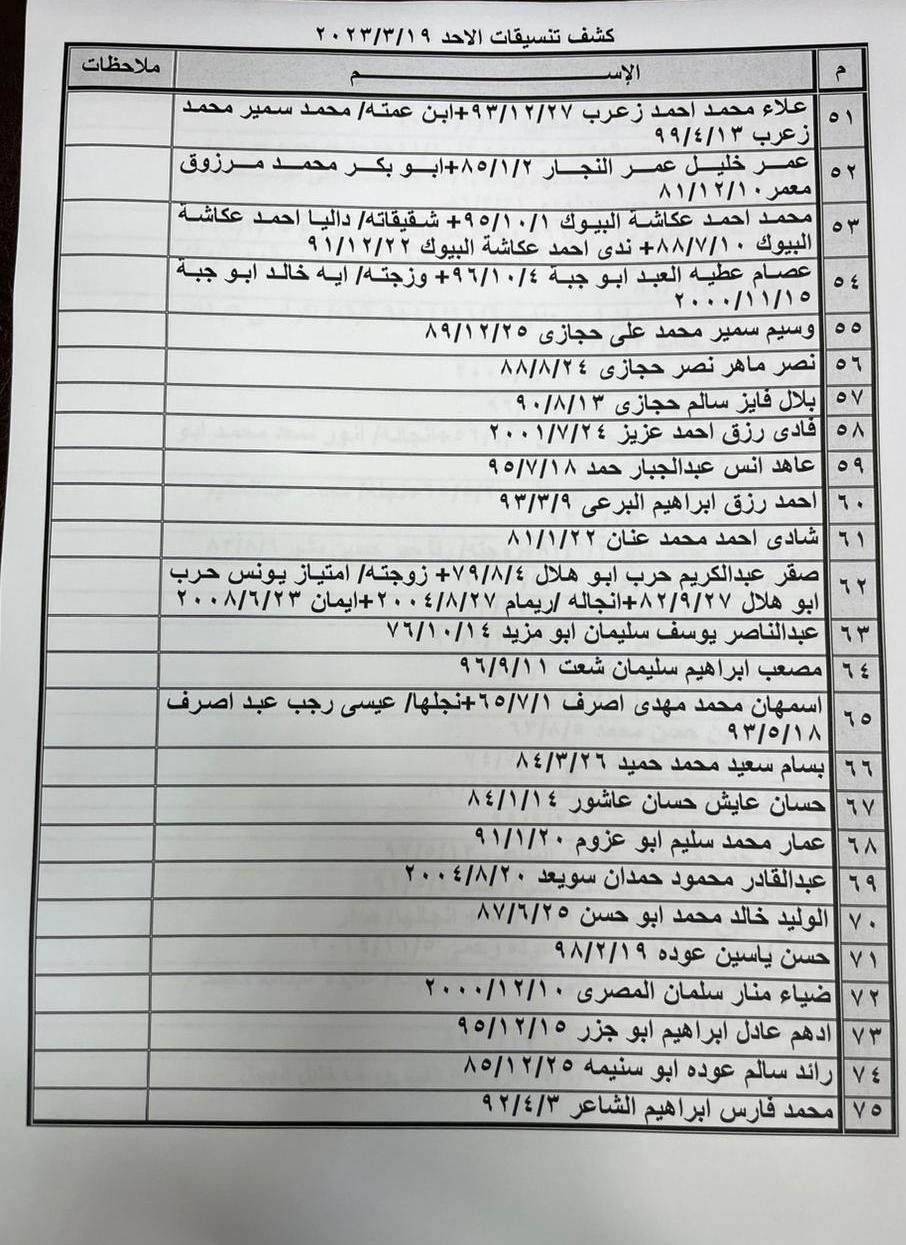 كشف تنسيقات الاحد ٢٠٢٣/٣/١٩
م الإســـــــم ملاحظات
٥١ علاء محمد احمد زعرب ٩٣/١٢/٢٧+ابن عمته/ محمد سمير محمد
زعرب ٩٩/٤/١٣
٥٢ عمر خليل عمر النجار ٨٥/١/٢+ابو بكر محمد مرزوق
معمر ٨١/١٢/١٠
٥٣ محمد احمد عكاشة البيوك ٩٥/١٠/١+ شقيقاته/ داليا احمد عكاشة
البيوك ٨٨/٧/١٠+ ندى احمد عكاشة البيوك ٩١/١٢/٢٢
٥٤ عصام عطيه العبد ابو جبة ٩٦/١٠/٤+ وزجته/ ايه خالد ابو جبة
٢٠٠٠/١١/١٥
٥٥ وسيم سمير محمد على حجازى ٨٩/١٢/٢٥
٥٦ نصر ماهر نصر حجازى ٨٨/٨/٢٤
٥٧ بلال فايز سالم حجازى ٩٠/٨/١٣
٥٨ فادى رزق احمد عزيز ٢٠٠١/٧/٢٤
٥٩ عاهد انس عبدالجبار حمد ٩٥/٧/١٨
٦٠ احمد رزق ابراهيم البرعى ٩٣/٣/٩
٦١ شادى احمد محمد عنان ٨١/١/٢٢
٦٢ صقر عبدالكريم حرب ابو هلال ٧٩/٨/٤+ زوجته/ امتياز يونس حرب
ابو هلال ٨٢/٩/٢٧+انجاله /ريمام ٢٠٠٤/٨/٢٧+ايمان ٢٠٠٨/٦/٢٣
٦٣ عبدالناصر يوسف سليمان ابو مزيد ٧٦/١٠/١٤
٦٤ مصعب ابراهيم سليمان شعت ٩٦/٩/١١
٦٥ اسمهان محمد مهدى اصرف ٦٥/٧/١+نجلها/ عيسى رجب عبد اصرف
٩٣/٥/١٨
٦٦ بسام سعيد محمد حميد ٨٤/٣/٢٦
٦٧ حسان عايش حسان عاشور ٨٤/١/١٤
٦٨ عمار محمد سليم ابو عزوم ٩١/١/٢٠
٦٩ عبدالقادر محمود حمدان سويعد ٢٠٠٤/٨/٢٠
٧٠ الوليد خالد محمد ابو حسن ٨٧/٦/٢٥
٧١ حسن ياسين عوده ٩٨/٢/١٩
٧٢ ضياء منار سلمان المصرى ٢٠٠٠/١٢/١٠
٧٣ ادهم عادل ابراهيم ابو جزر ٩٥/١٢/١٥
٧٤ رائد سالم عوده ابو سنيمه ٨٥/١٢/٢٥
٧٥ محمد فارس ابراهيم الشاعر ٩٢/٤/٣